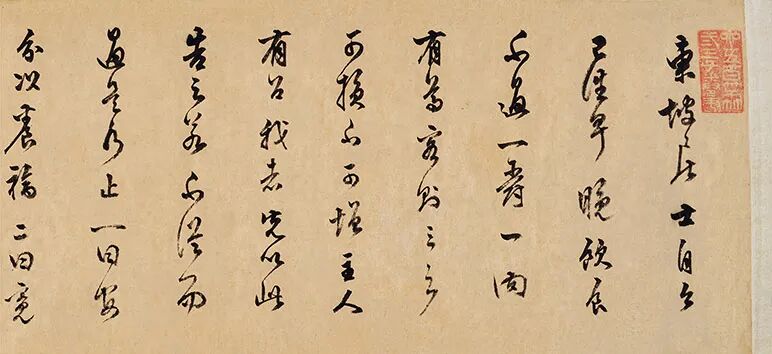 東坡居士自今
已往早晚飲食
不過一爵一肉
有尊客則三之
可損不可增主人
有召我者先以此
告之若不從而
過是乃止一曰安
分以養福二曰寬